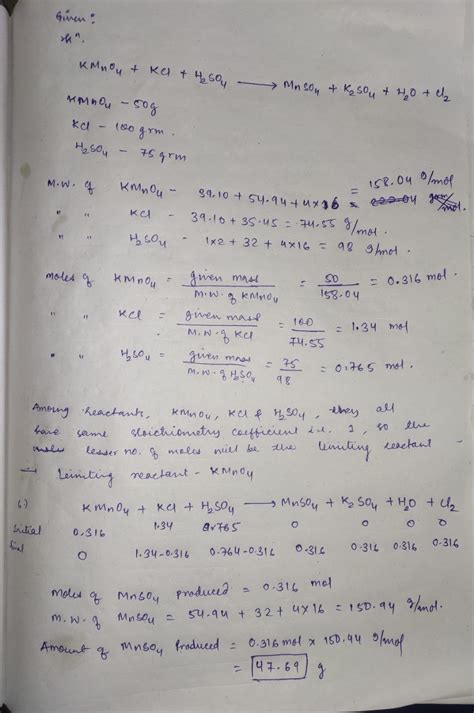 Given:
Rxn.
KMnO4 + KCl + H2SO4 ⟶ MnSO4 + K2SO4 + H2O + Cl2
KMnO4 - 50g
KCl - 100 grm.
H2SO4 - 75 grm
M.W. of KMnO4 - 39.10 + 54.94 + 4×16 = 158.04 g/mol
" " KCl - 39.10 + 35.45 = 74.55 g/mol.
" " H2SO4 - 1×2 + 32 + 4×16 = 98 g/mol.
moles of KMnO4 = given mass / M.W. of KMnO4 = 50 / 158.04 = 0.316 mol.
" " KCl = given mass / M.W. of KCl = 100 / 74.55 = 1.34 mol
" " H2SO4 = given mass / M.W. of H2SO4 = 75 / 98 = 0.765 mol.
Among reactants, KMnO4, KCl & H2SO4, they all
have same stoichiometry coefficient i.e. 1, so the
lesser no. of moles will be the limiting reactant -
limiting reactant - KMnO4
KMnO4 + KCl + H2SO4 ⟶ MnSO4 + K2SO4 + H2O + Cl2
Initial 0.316 1.34 0.765 0 0 0 0
final 0 1.34-0.316 0.764-0.316 0.316 0.316 0.316 0.316
moles of MnSO4 produced = 0.316 mol
m.w. of MnSO4 = 54.94 + 32 + 4×16 = 150.94 g/mol.
Amount of MnSO4 Produced = 0.316 mol × 150.94 g/mol
= 47.69 g